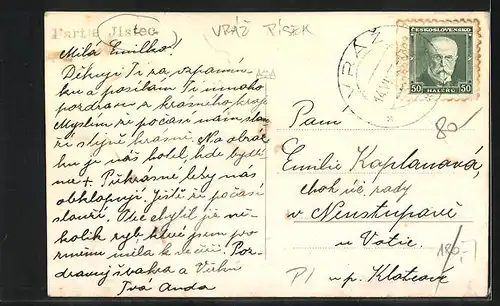 Partie Jistec
VRÁŽ PÍSEK
Milá Emilko!
Děkuji Ti za vzpomín-
ku a posílám Ti mnoho
pozdravů z krásného kraje
Myslím že počasí nám slou-
ží stejně krásné. Na obráz-
ku je náš hotel, kde bydlí-
me +. Překrásné lesy nás
obklopují. Ještě že počasí
slouží. chytil již ně-
kolik ryb, které jsem
měla k večeři. Poz-
dravuj švakra a
Tvá Anda
ČESKOSLOVENSKO
50 HALÉŘŮ 50
VRÁŽ
80
Paní
Emilie Kaplanová,
choť úč. rady
v Neustupově
u Votic
180
Pl n p. Klatově